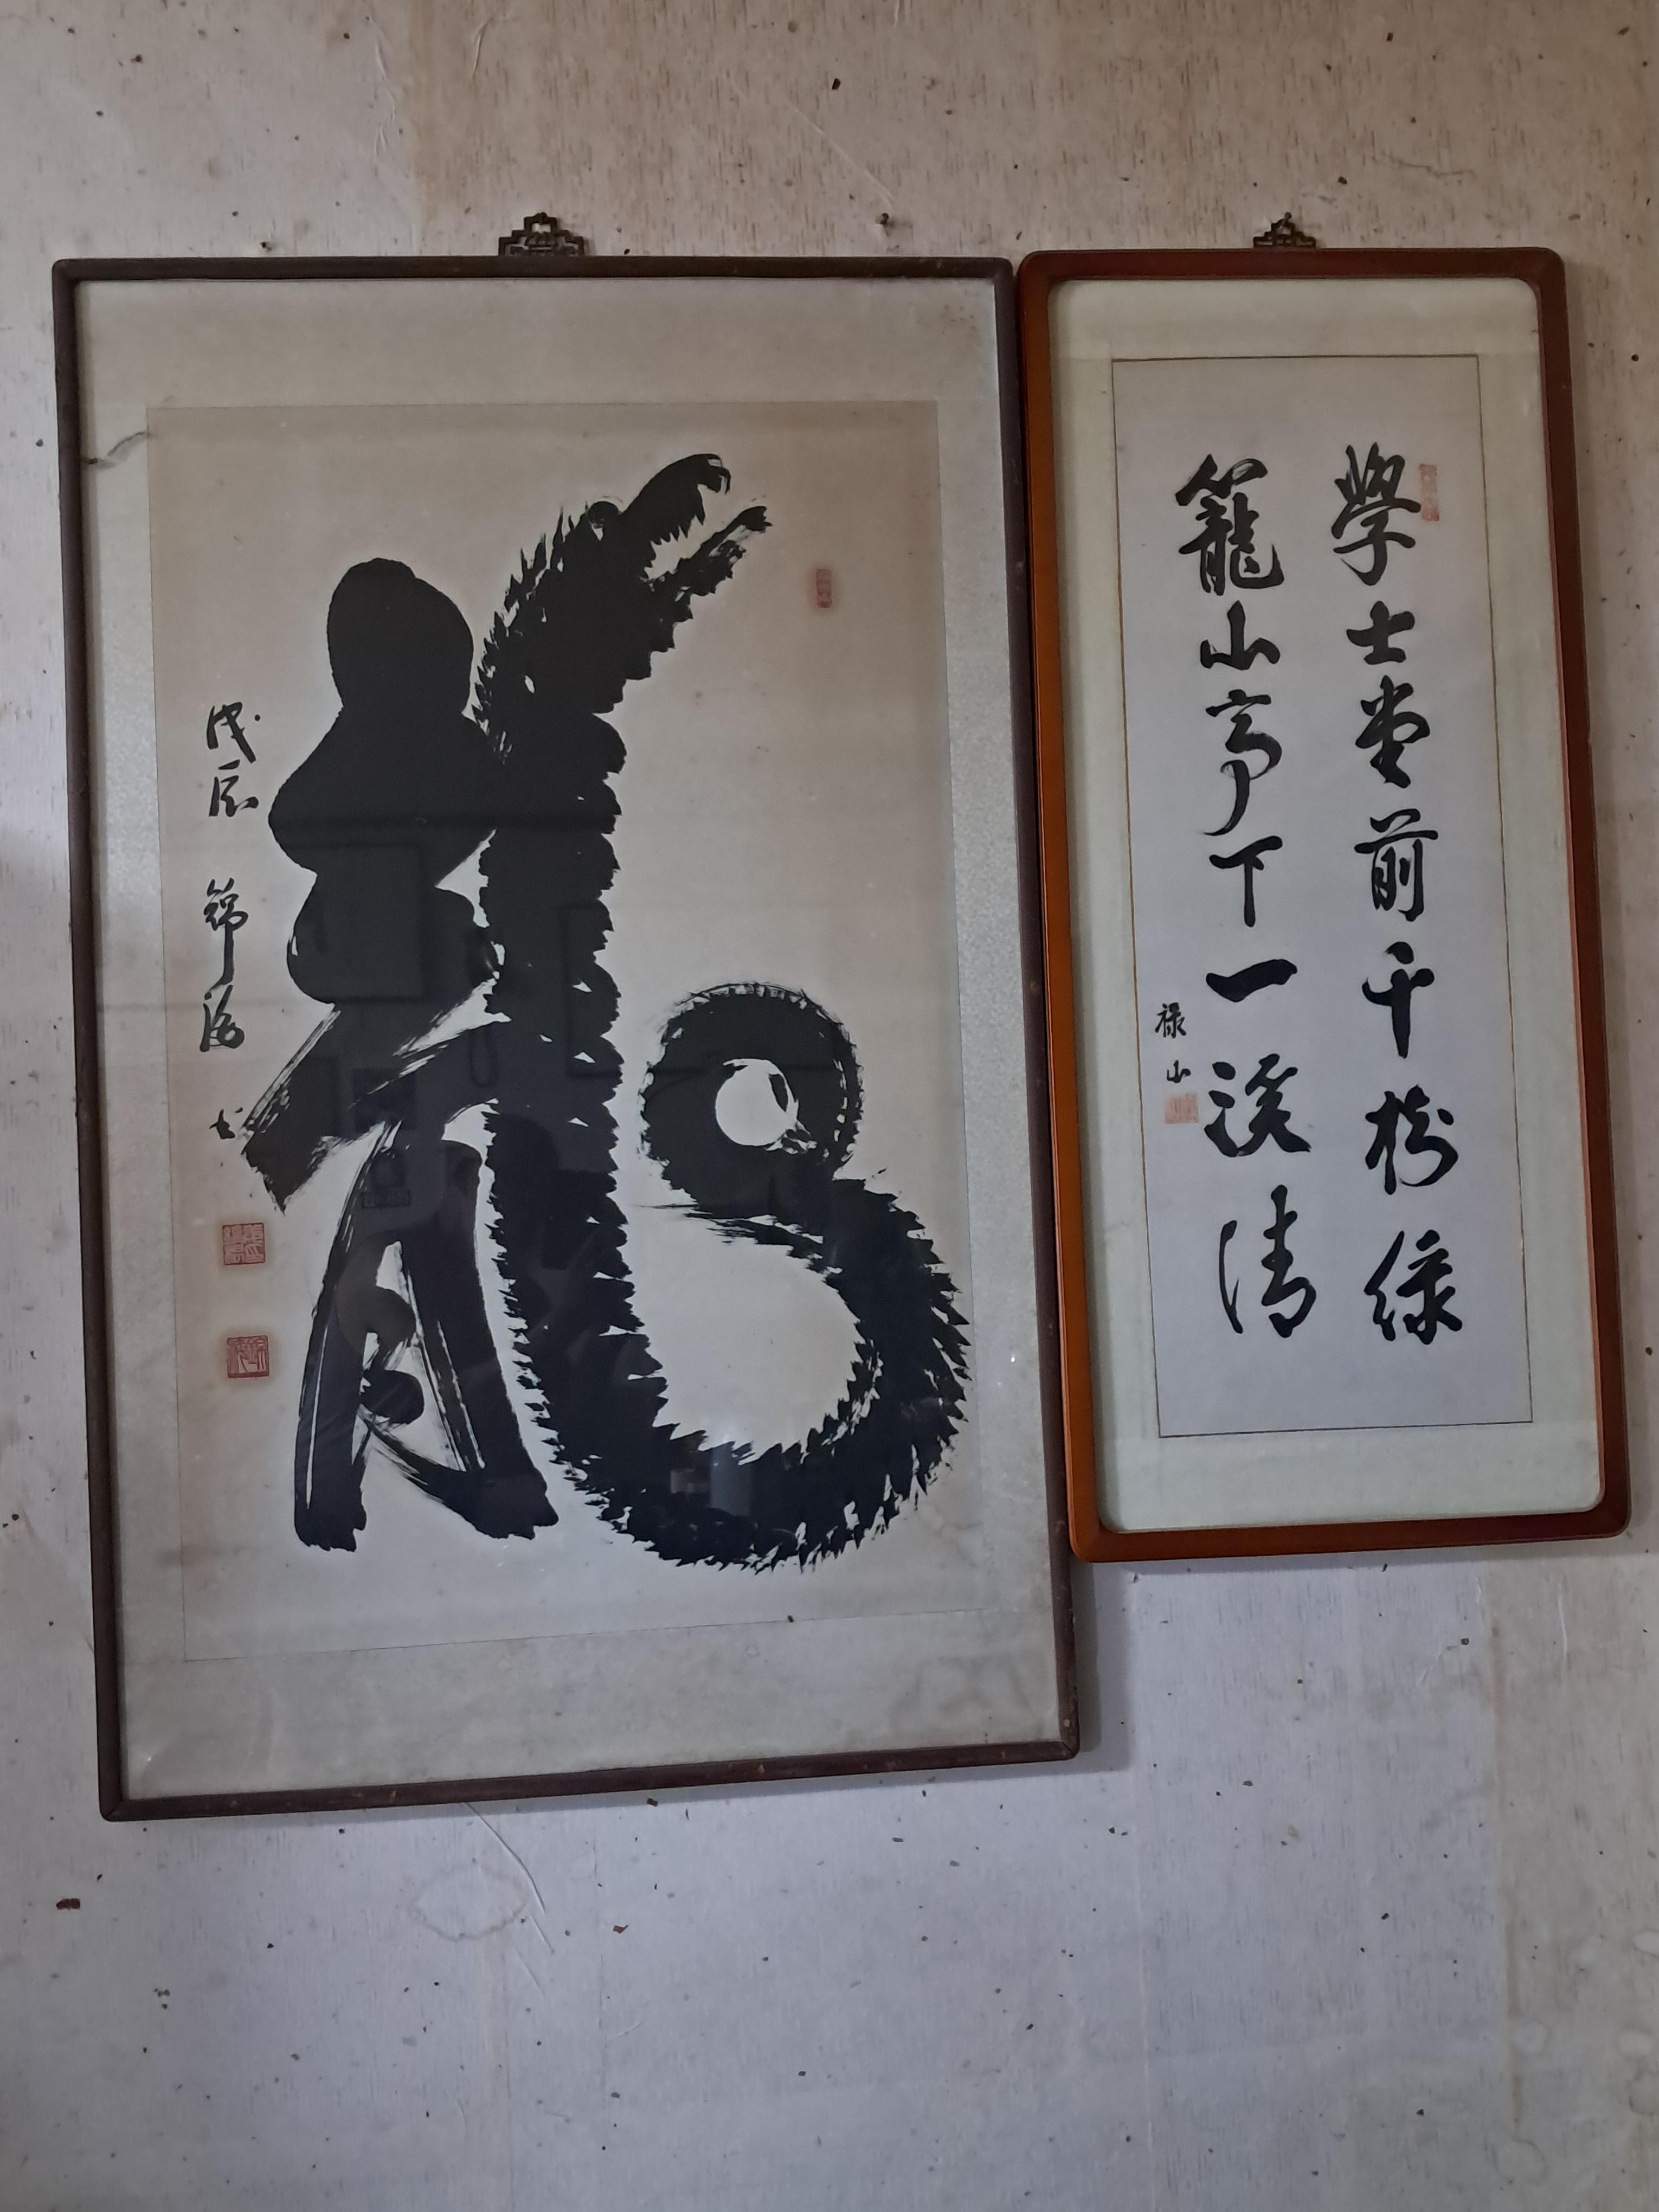 龍
戊辰 錦海 书
學士堂前千樹綠
籠山亭下一溪清
祿山